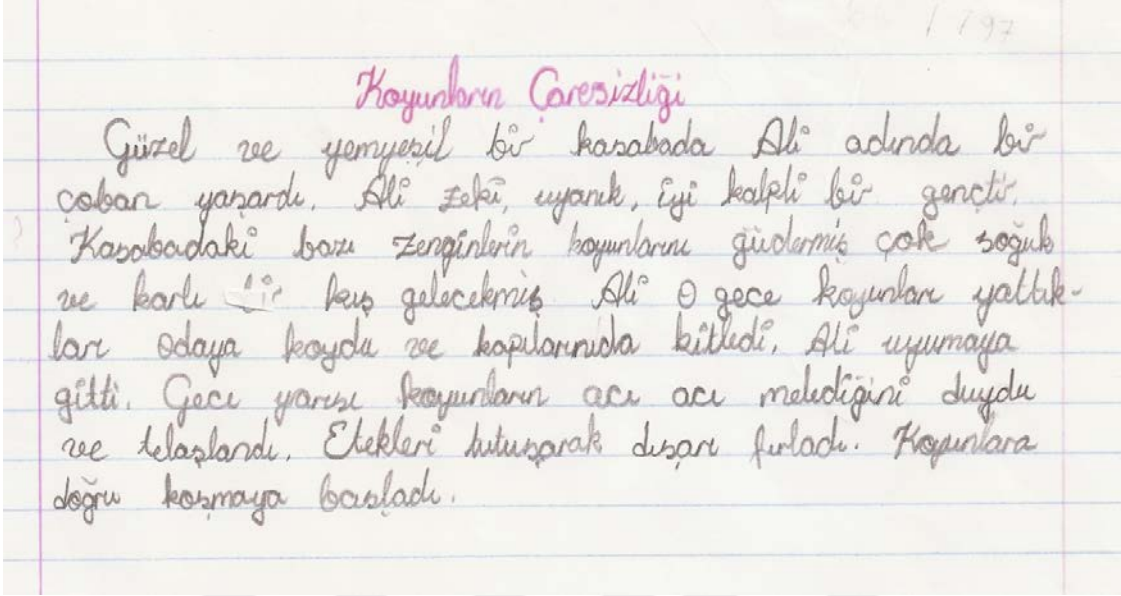 Koyunların Çaresizliği
Güzel ve yemyeşil bir kasabada Ali adında bir
çoban yaşardı. Ali zeki, uyanık, iyi kalpli bir gençti.
Kasabadaki bazı zenginlerin koyunlarını güdermiş çok soğuk
ve karlı bir kış gelecekmiş Ali O gece koyunları yattık-
ları odaya koydu ve kapılarınıda kitledi. Ali uyumaya
gitti. Gece yarısı koyunların acı acı melediğini duydu
ve telaşlandı. Etekleri tutuşarak dışarı fırladı. Koyunlara
doğru koşmaya başladı.